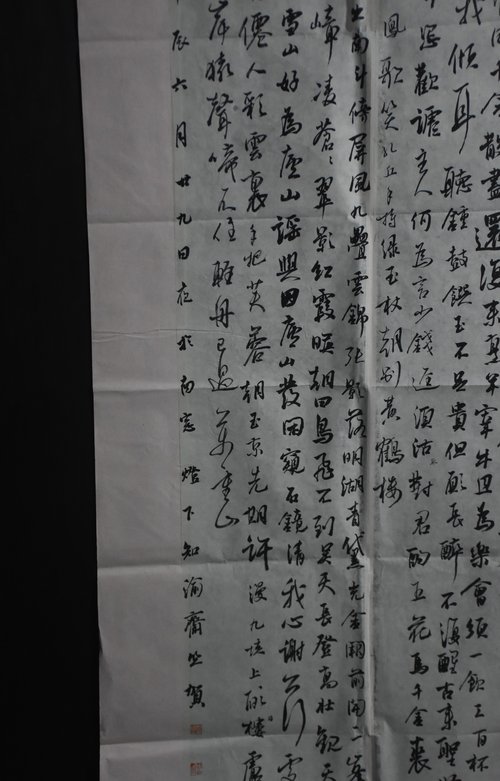 千金散盡還復來烹羊宰牛且為樂會須一飲三百杯
我傾耳聽鐘鼓饌玉不足貴但願長醉不復醒古來聖
恣歡謔主人何為言少錢逕須沽對君酌五花馬千金裘
鳳歌笑孔丘手持綠玉杖朝別黃鶴樓
出南斗傍屏風九疊雲錦張影落明湖青黛光金闕前開二峯
嶂凌蒼蒼翠影紅霞映朝日鳥飛不到吳天長登高壯觀天
雪山好為廬山謠興因廬山發閑窺石鏡清我心謝公行
僊人彩雲裏手把芙蓉朝玉京先期汗漫九垓上願接盧
岸猿聲啼不住輕舟已過萬重山
辰六月廿九日夜於南窓燈下知渝齋竺賀